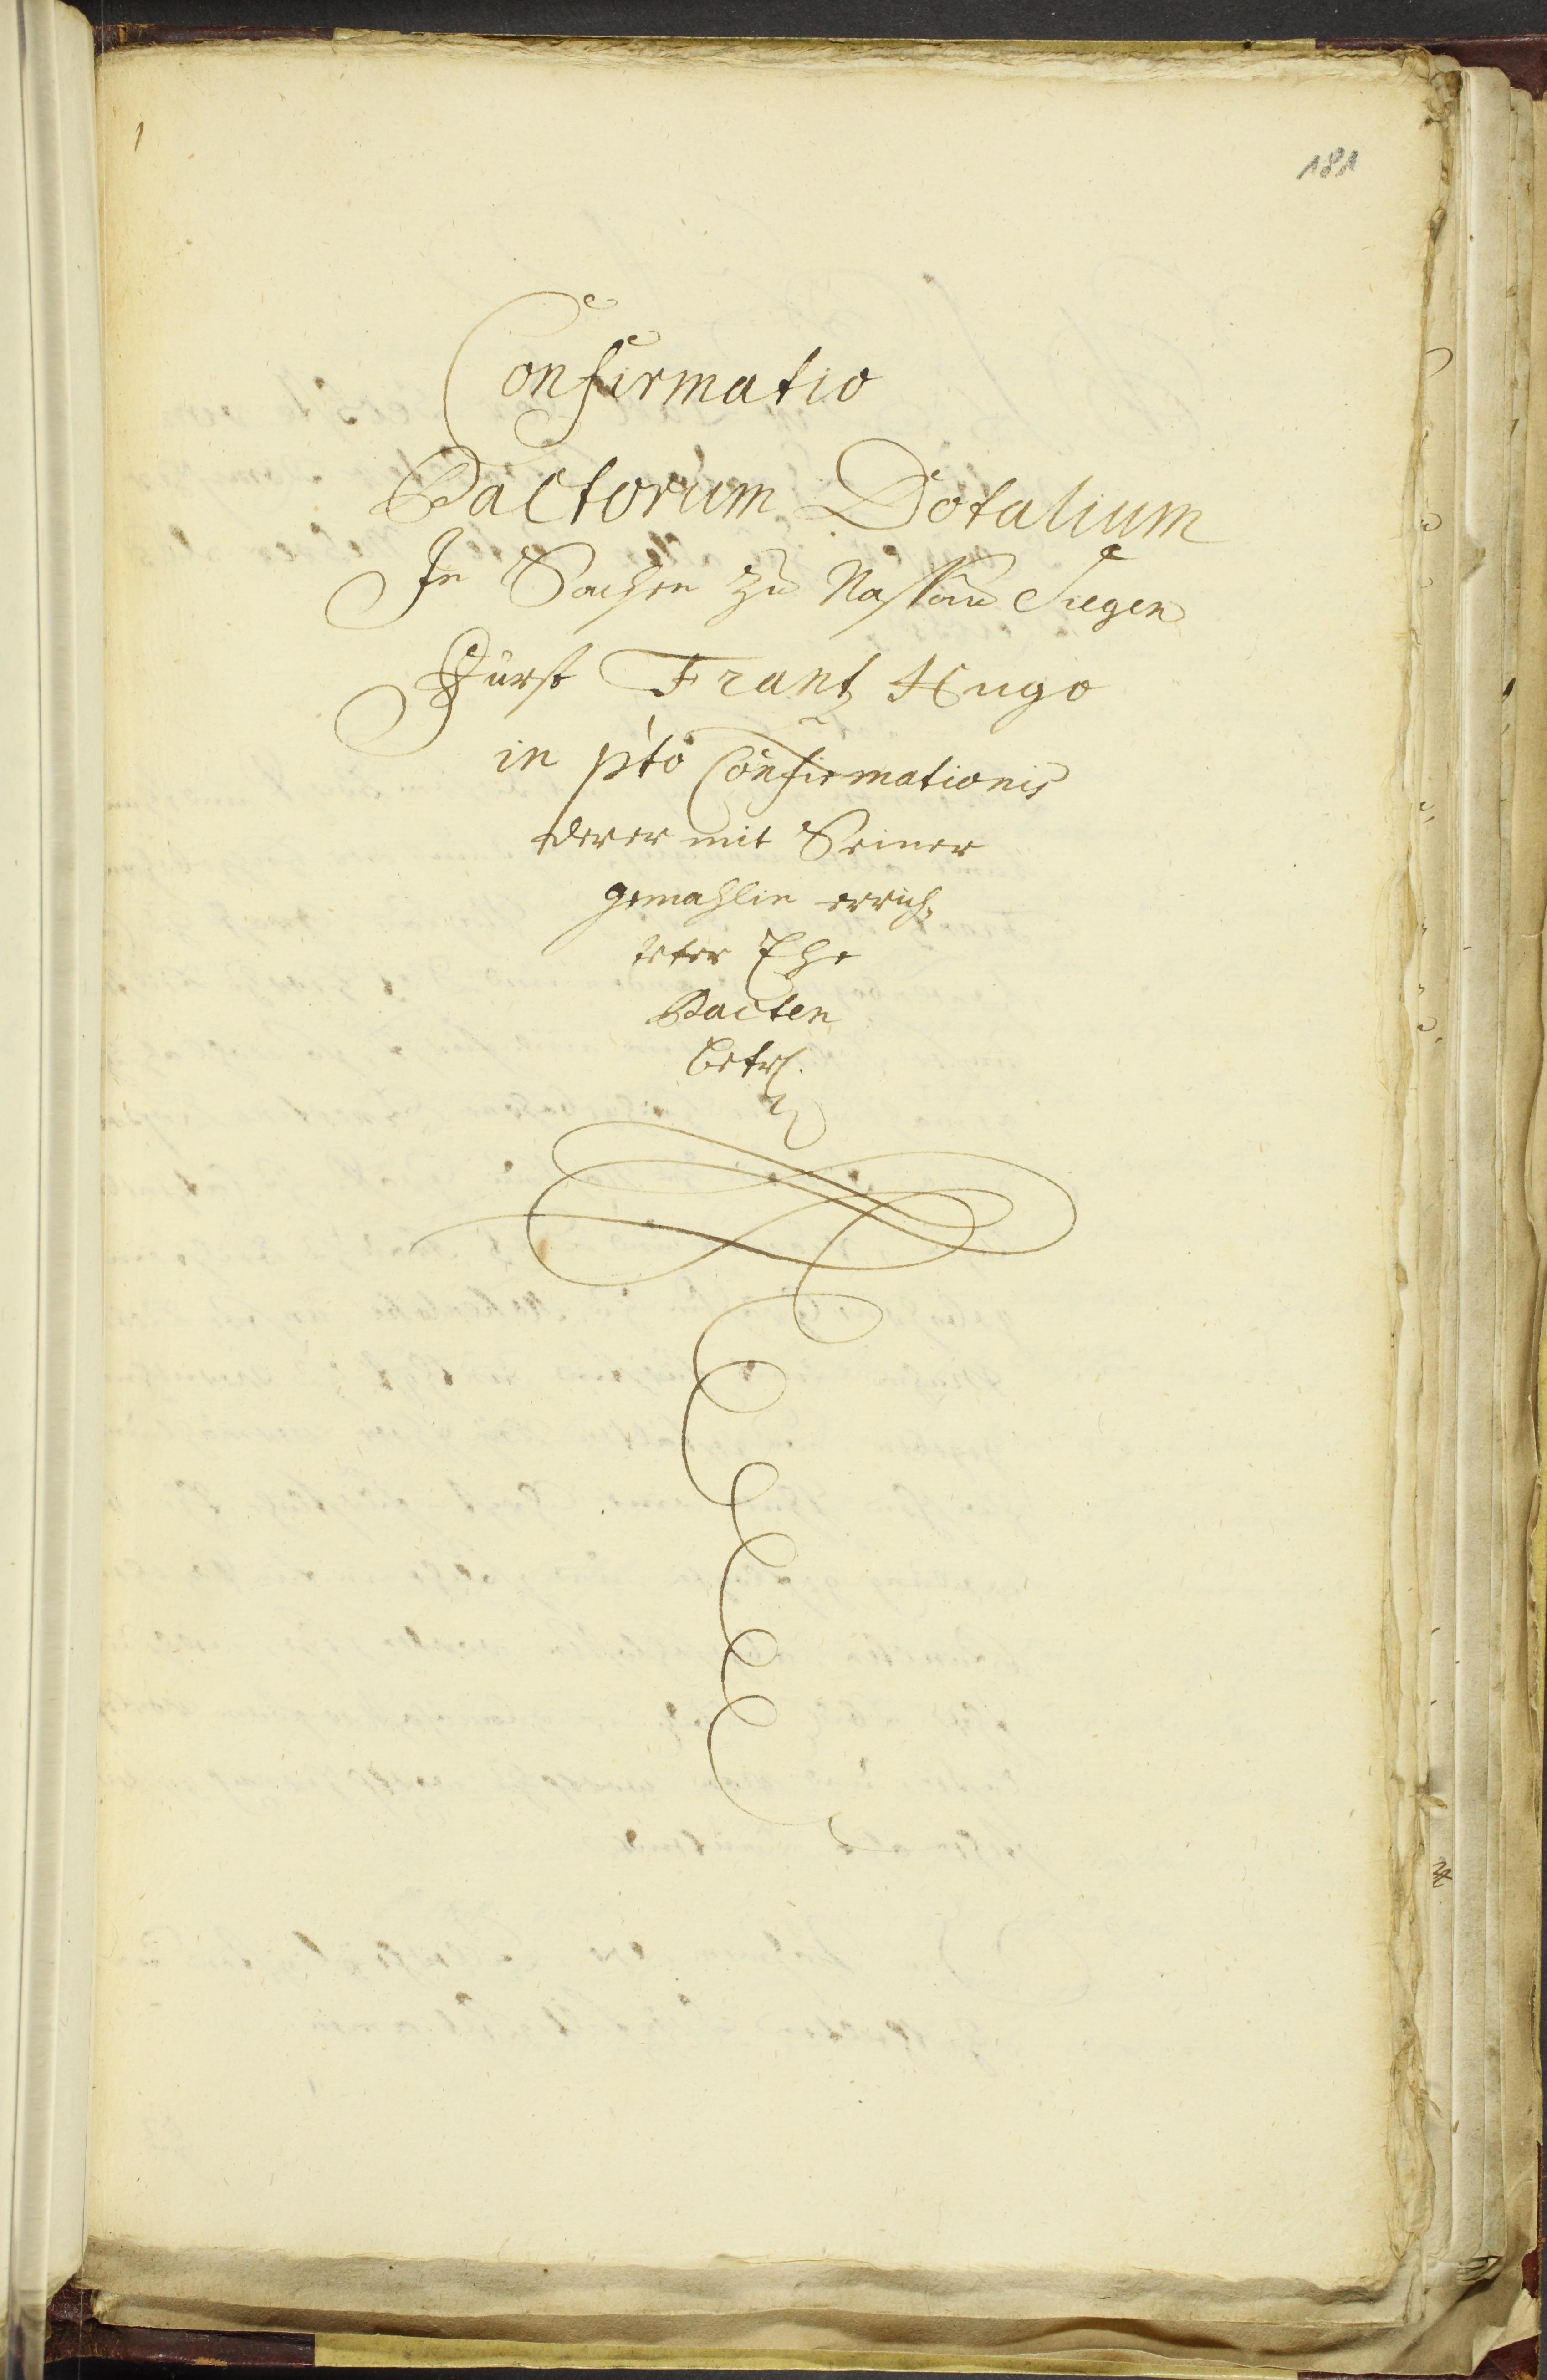 181
Confirmatio
Pactorum Dotalium
In Sachen zu Nassau Siegen
Fürst Frantz Hugo
in pto Confirmationis
derer mit Seiner
gemahlin errich¬
teter Ehe
Pacten
betrl.